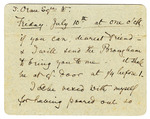 Friday July 10th at one o'clk
if you can dearest friend -
& I will send the Brougham
to bring you to me it shall
be at yr door at 1/4 before 1.
I am vexed with myself
for having poured out so